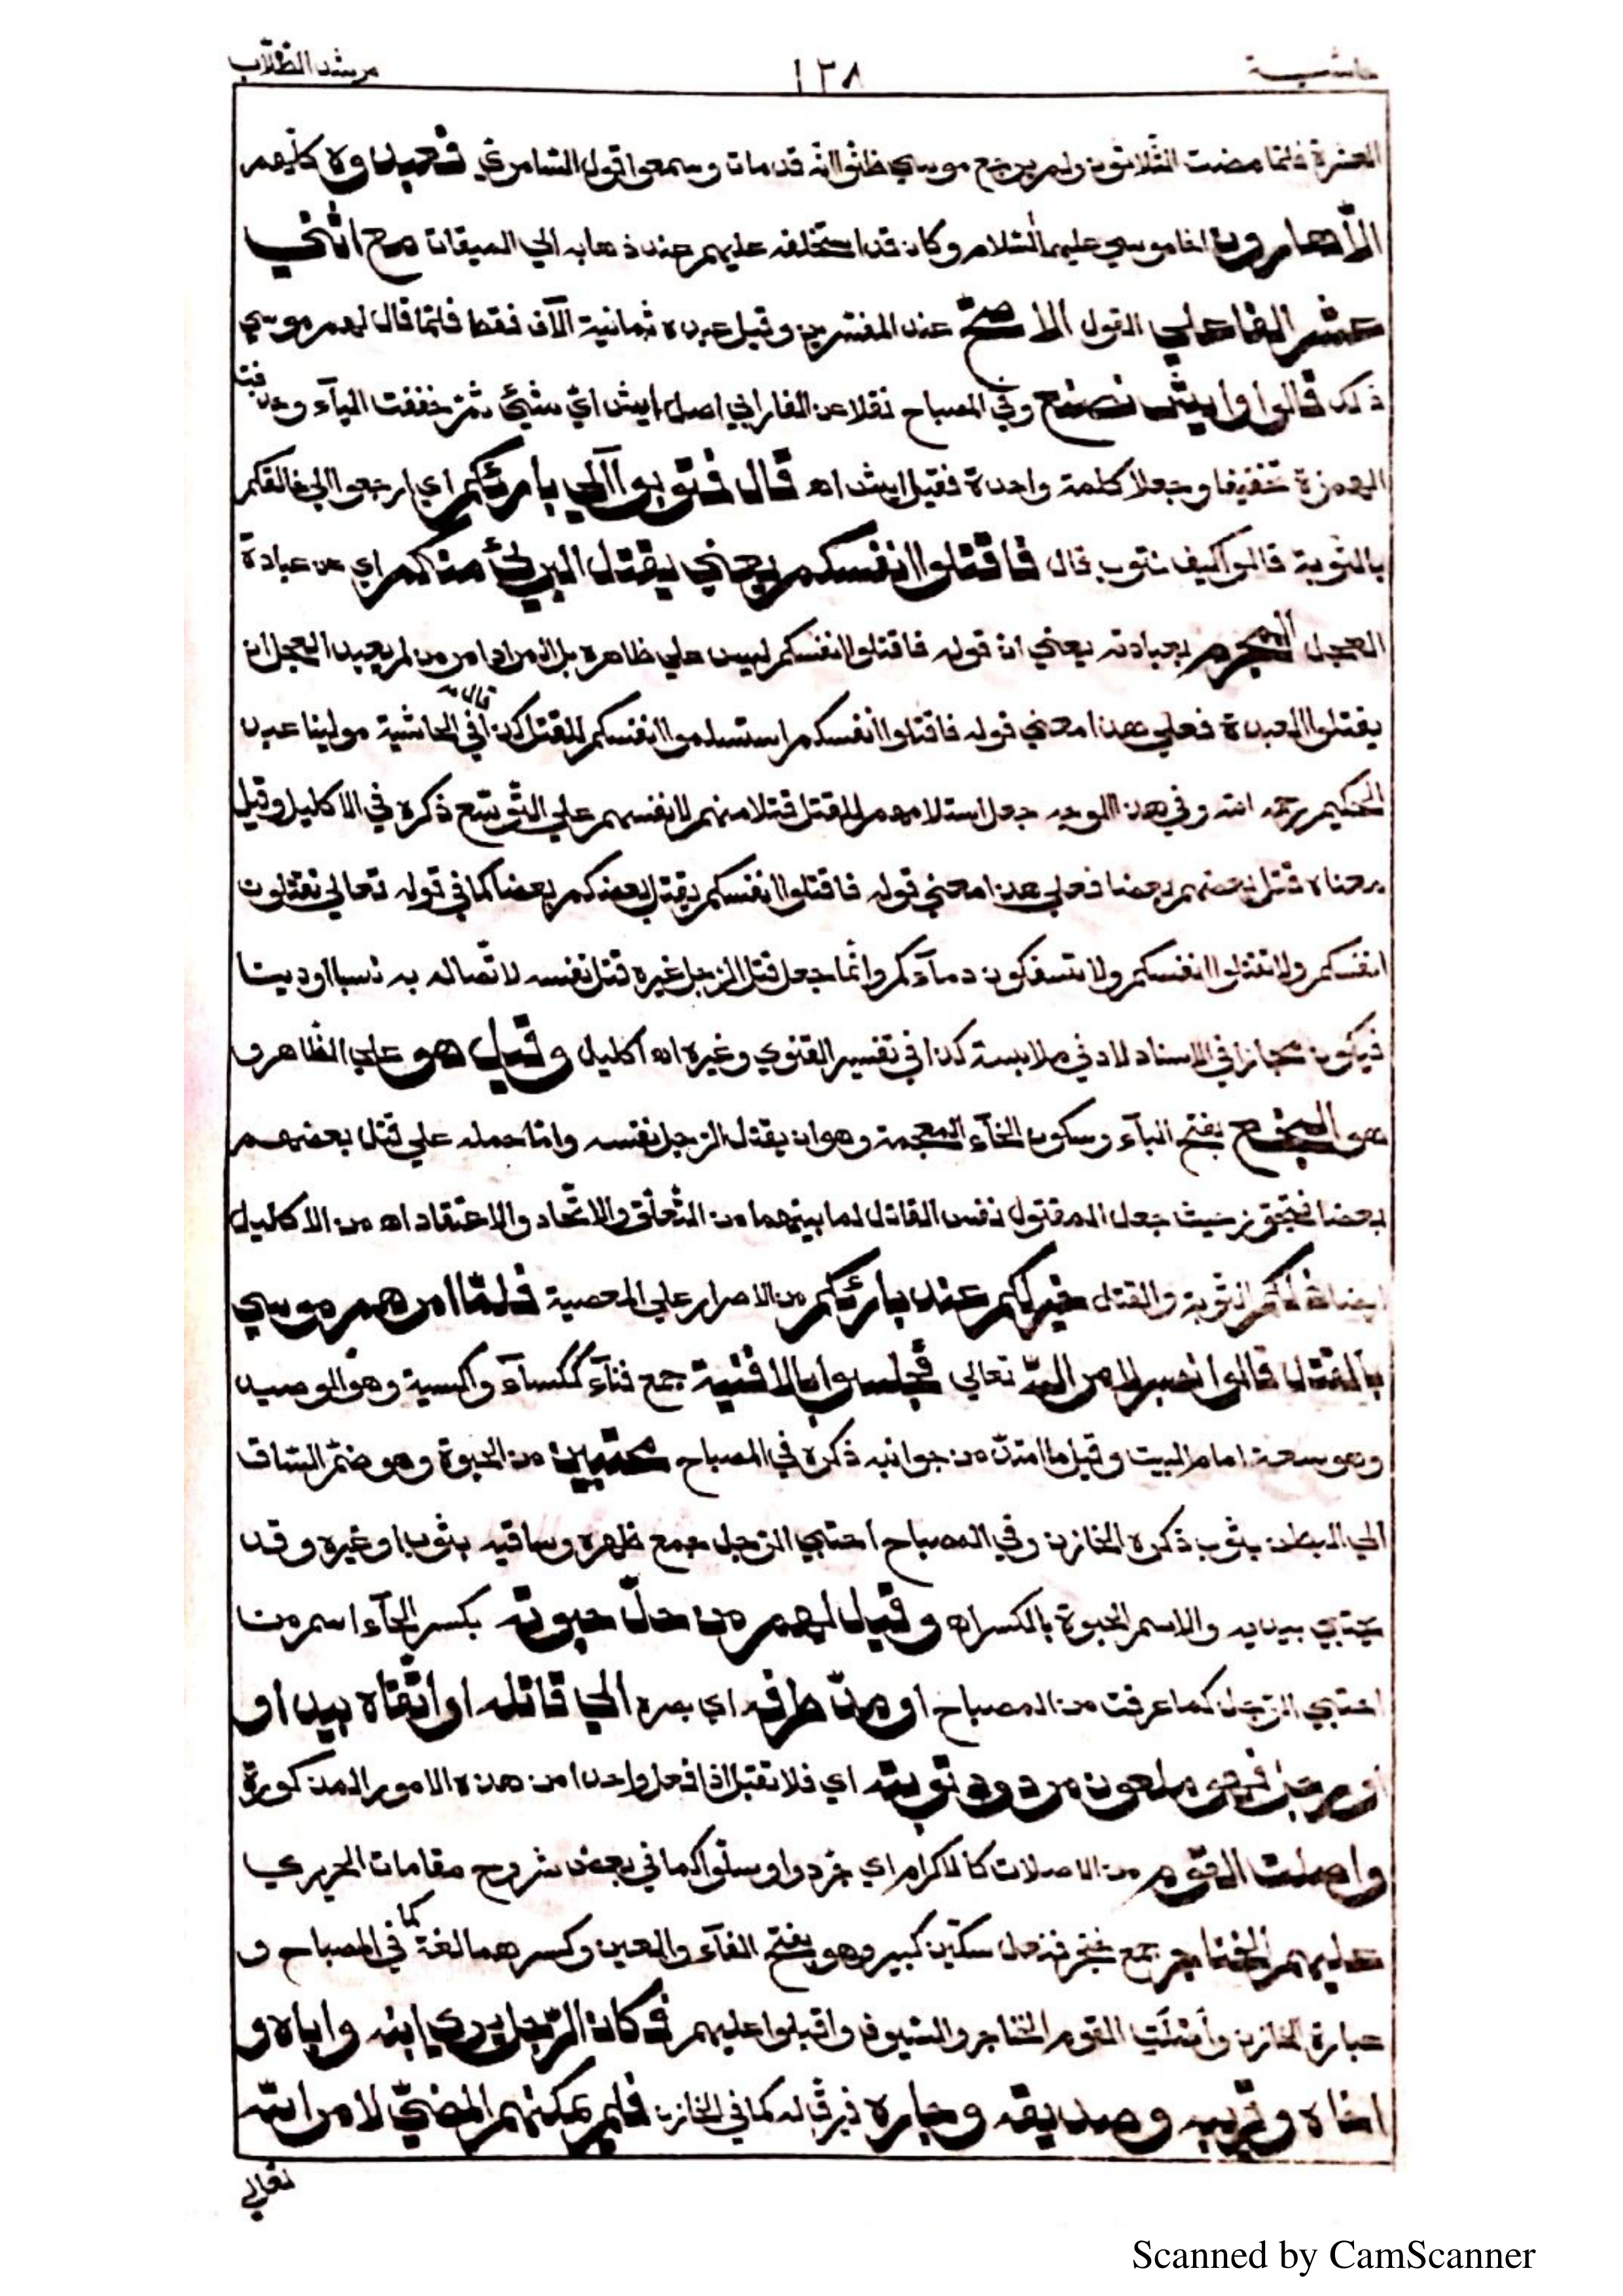 حاشية ١٣٨ مرشد الطلّاب
العشرة فلمّا مضت الثّلاثون ولم يرجع موسي ظنّوا انّه قد مات وسمعوا قول السّامريّ فعبدوه كلّهم
الّا هارون اخا موسي عليهما السّلام وكان قد استخلفه عليهم عند ذهابه الي الميقات مع اثني
عشر الفا علي القول الاصحّ عند المفسّرين وقيل عبده ثمانية الآف فقط فلمّا قال لهم موسي
ذلك قالوا وايش نصنع وفي المصباح نقلا عن الفارابي اصل ايش ايّ شيئ ثمّ خففت اليآء وحذفت
الهمزة تخفيفا وجعلا كلمة واحدة فقيل ايش اه قال فتوبوا آلي بارئكم اي ارجعوا الي خالقكم
بالتّوبة قالوا كيف نتوب قال فاقتلوا انفسكم يعني يقتل البريئ منكم اي عن عبادة
العجل المجرم بعبادته يعني انّ قوله فاقتلوا انفسكم ليس علي ظاهره بل المراد امر من لم يعبد العجل ان
يقتلوا العبدة فعلي هذا معني قوله فاقتلوا انفسكم استسلموا انفسكم للقتل كذا قاله في الحاشية مولينا عبد
الحكيم رحمه الله وفي هذا الوجه جعل استلامهم للقتل قتلا منهم لانفسهم علي التّوسّع ذكره في الاكليل وقيل
معناه قتل بعضهم بعضا فعلي هذا معني قوله فاقتلوا انفسكم يقتل بعضكم بعضا كما في قوله تعالي تقتلون
انفسكم ولا تقتلوا انفسكم ولا تسفكون دمآءكم وانّما جعل قتل الرّجل غيره قتل نفسه لاتّصاله به نسبا او دينا
فيكون مجازا في الاسناد لادني ملابسة كذا في تفسير القنوي وغيره اه اكليل وقيل هو علي الظّاهر و
هو البخع بفتح البآء وسكون الخآء المعجمة وهو ان يقتل الرّجل نفسه وامّا حمله علي قتل بعضهم
بعضا فتجوّز حيث جعل المقتول نفس القاتل لما بينهما من التّعلّق والاتّحاد والاعتقاد اه من الاكليل
ايضا ذلكم التّوبة والقتل خير لكم عند بارئكم من الاصرار علي المعصية فلمّا امرهم موسي
بالقتل قالوا نصبر لامر اللّه تعالي فجلسوا بالافنية جمع فنآء ككسآء واكسية وهو الوصيد
وهو سعة امام البيت وقيل ما امتدّ من جوانبه ذكره في المصباح محتبين من الحبوة وهو ضمّ السّاق
الي البطن بثوب ذكره الخازن وفي المصباح احتبي الرّجل جمع ظهره وساقيه بثوب او غيره وقد
يحتبي بيديه والاسم الحبوة بالكسر اه وقيل لهم من حلّ حبوته بكسر الحآء اسم من
احتبي الرّجل كما عرفت من المصباح او مدّ طرفه اي بصره الي قاتله او اتّقاه بيد او
او برجل فهو ملعون مردود توبته اي فلا تقبل اذا فعل واحدا من هذه الامور المذكورة
واصلت القوم من الاصلات كالاكرام اي جرّدوا وسلّوا كما في بعض شروح مقامات الحريري
عليهم الخناجر جمع خنجر فنعل سكّين كبير وهو بفتح الفآء والعين وكسرهما لغة كما في المصباح و
عبارة الخازن وأسلَتِ القوم الخناجر والسّيوف واقبلوا عليهم فكان الرّجل يري ابنه واباه و
اخاه وقريبه وصديقه وجاره فيرقّ له كما في الخازن فلم يمكنهم المضيّ لامر اللّه
تعالي
Scanned by CamScanner